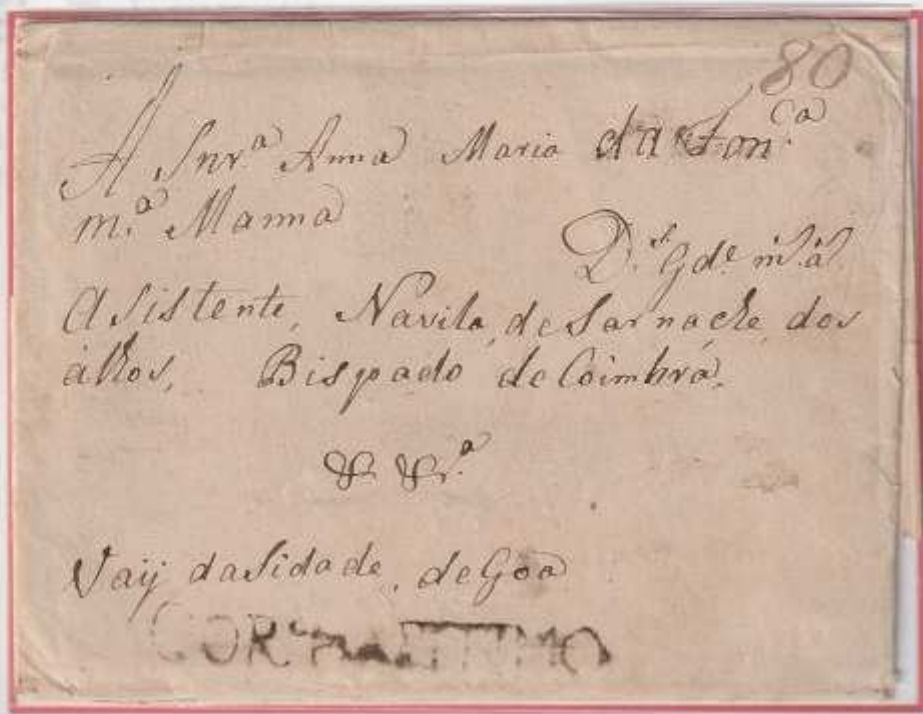 80
A Snr.ª Anna Maria da Fon.ᶜᵃ
m.ª Manna
D.ˢ Gd.ᵉ m.ˢ a.ˢ
Asistente, Navila, de Sarnache, dos
alhos, Bispado de Coimbra,
& &.ª
Vaij da Sidade, de Goa